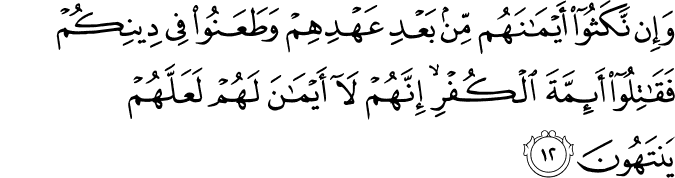 وَإِن نَّكَثُوٓا۟ أَيْمَـٰنَهُم مِّنۢ بَعْدِ عَهْدِهِمْ وَطَعَنُوا۟ فِى دِينِكُمْ
فَقَـٰتِلُوٓا۟ أَئِمَّةَ ٱلْكُفْرِ ۙ إِنَّهُمْ لَآ أَيْمَـٰنَ لَهُمْ لَعَلَّهُمْ
يَنتَهُونَ ١٢